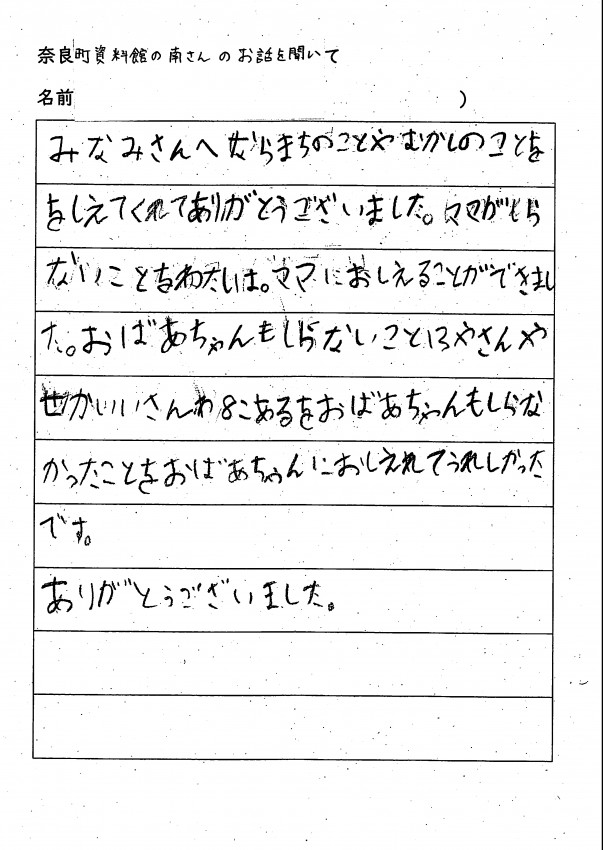 奈良町資料館の南さんのお話を聞いて
名前 )
みなみさんへならまちのことやむかしのことを
をしえてくれてありがとうございました。ママがしら
ないことをわたしは。ママにおしえることができまし
た。おばあちゃんもしらないことにやさんや
せかいいさんわ8こあるをおばあちゃんもしらな
かったことをおばあちゃんにおしえれてうれしかった
です。
ありがとうございました。